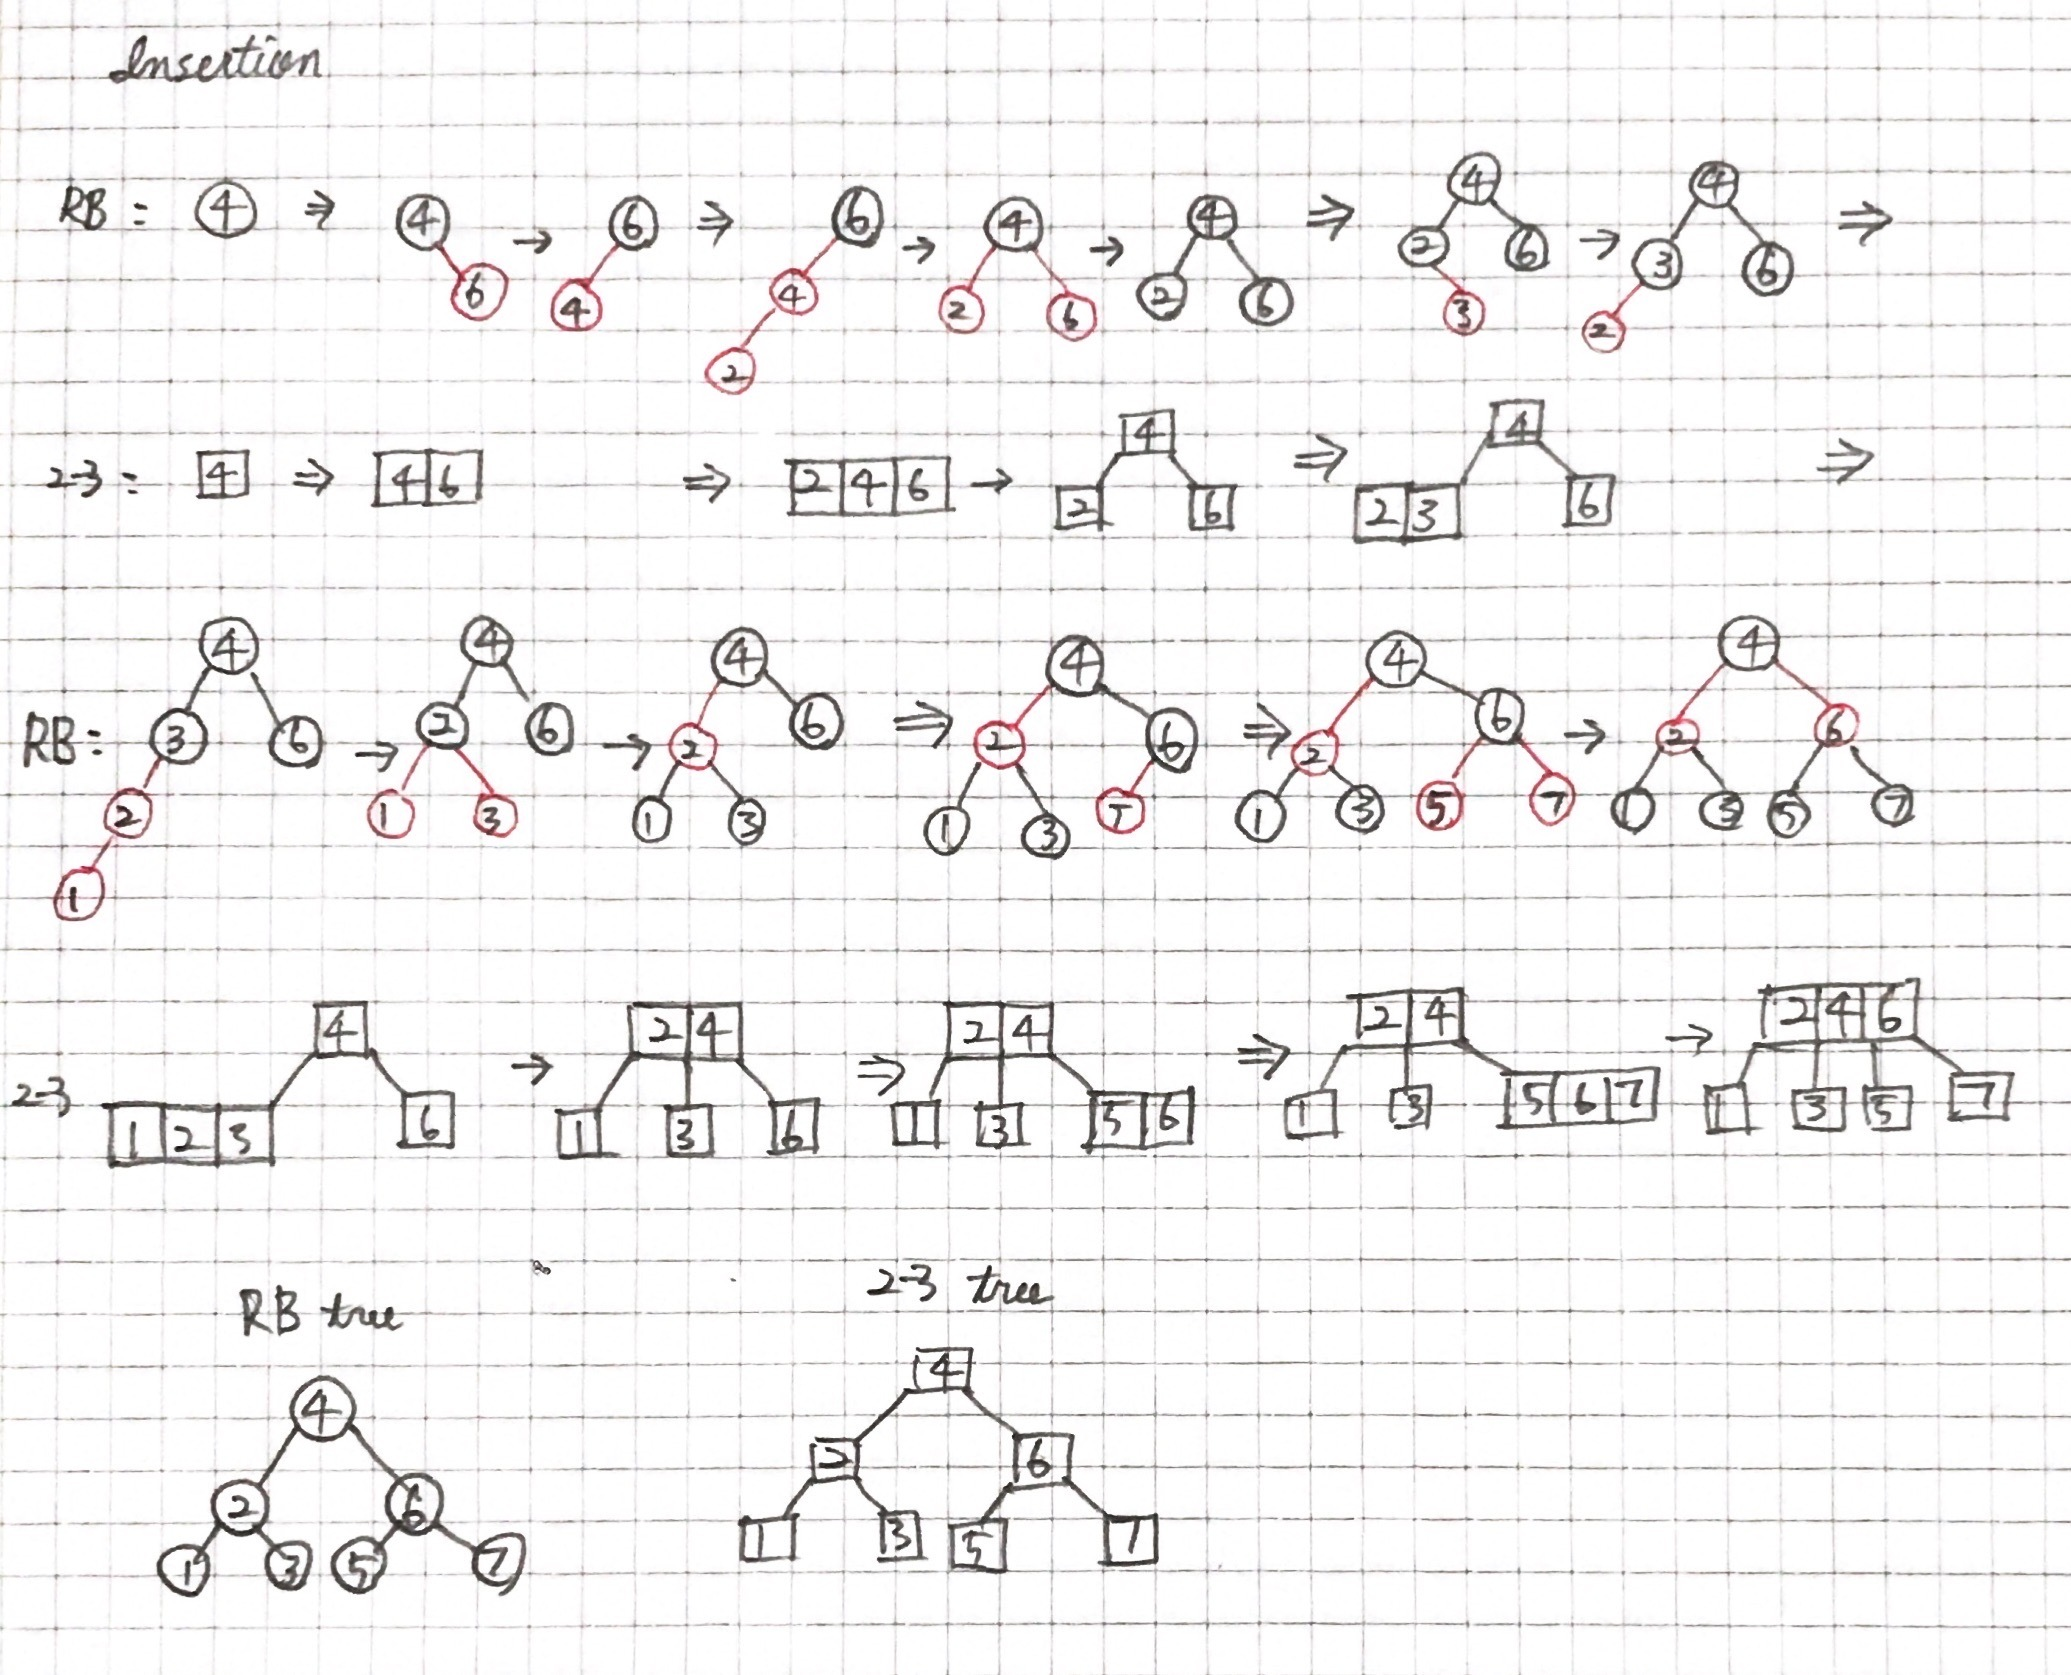 Insertion
RB: 4 ⇒ 4 6 → 6 4 ⇒ 6 4 2 → 4 2 6 → 4 2 6 ⇒ 4 2 6 3 → 4 3 6 2 ⇒
2-3: 4 ⇒ 4 6 ⇒ 2 4 6 → 4 2 6 ⇒ 4 2 3 6 ⇒
RB: 4 3 6 2 1 → 4 2 6 1 3 → 4 2 6 1 3 ⇒ 4 2 6 1 3 5 ⇒ 4 2 6 1 3 5 7 → 4 2 6 1 3 5 7
2-3 4 1 2 3 6 → 2 4 1 3 6 ⇒ 2 4 1 3 5 6 ⇒ 2 4 1 3 5 6 7 → 2 4 6 1 3 5 7
RB tree
4
2 6
1 3 5 7
2-3 tree
4
2 6
1 3 5 7